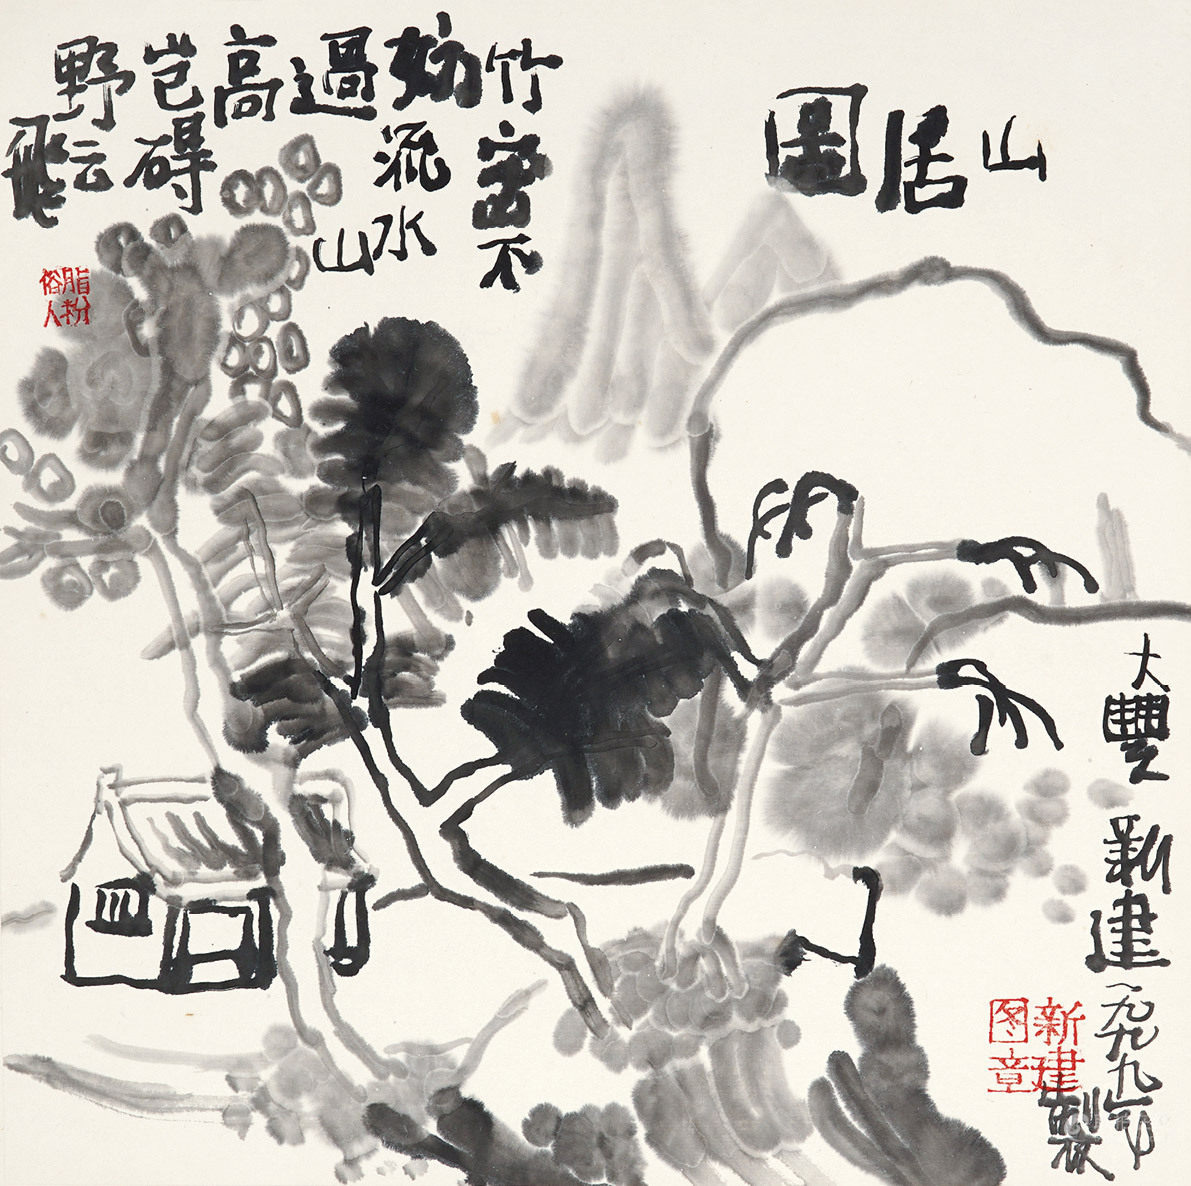 山居圖
竹密不
妨流水
過山
高
岂碍
野云
飛
脂粉
俗人
大豐 新建 一九九九年
製
新建
图章